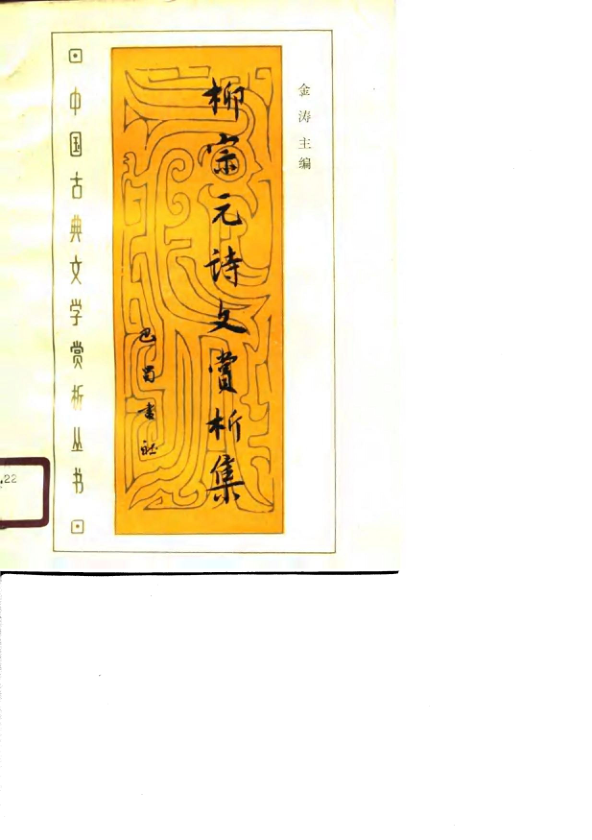 金涛主编
柳宗元诗文赏析集
巴蜀书社
中国古典文学赏析丛书
.22